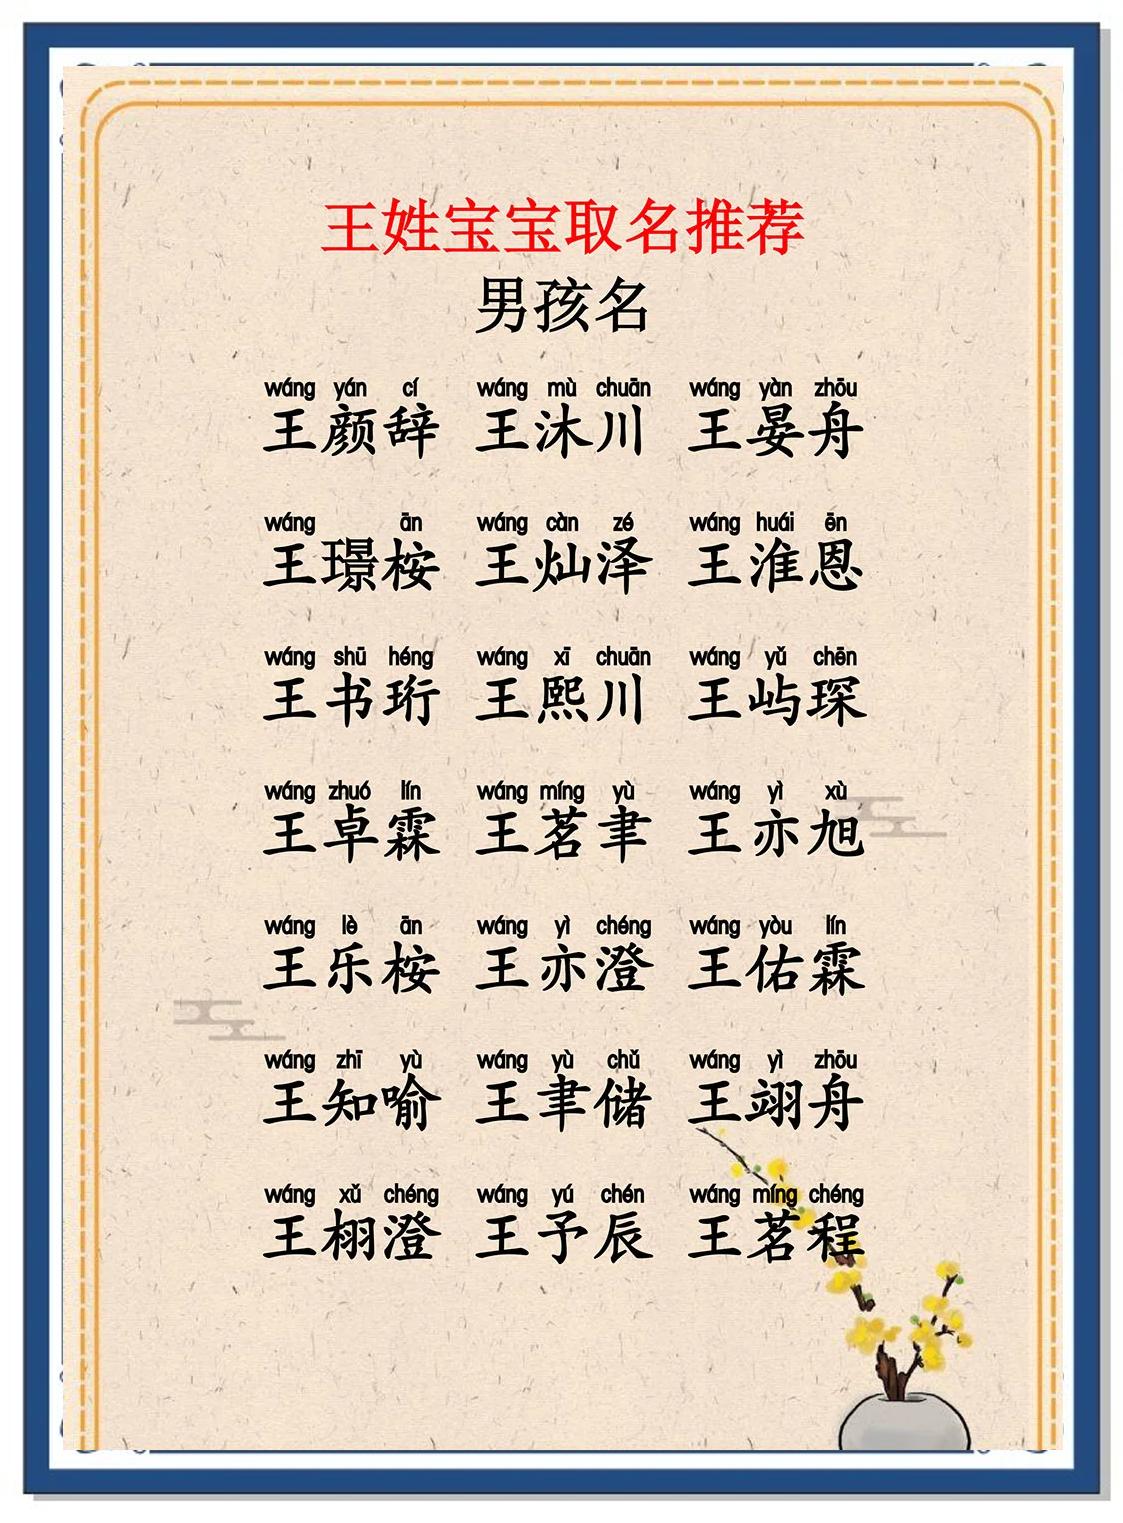 王姓宝宝取名推荐
男孩名
wáng yán cí wáng mù chuān wáng yàn zhōu
王颜辞 王沐川 王晏舟
wáng ān wáng càn zé wáng huái ēn
王璟桉 王灿泽 王淮恩
wáng shū héng wáng xī chuān wáng yǔ chēn
王书珩 王熙川 王屿琛
wáng zhuó lín wáng míng yù wáng yì xù
王卓霖 王茗聿 王亦旭
wáng lè ān wáng yì chéng wáng yòu lín
王乐桉 王亦澄 王佑霖
wáng zhī yù wáng yù chǔ wáng yì zhōu
王知喻 王聿储 王翊舟
wáng xǔ chéng wáng yú chén wáng míng chéng
王栩澄 王予辰 王茗程